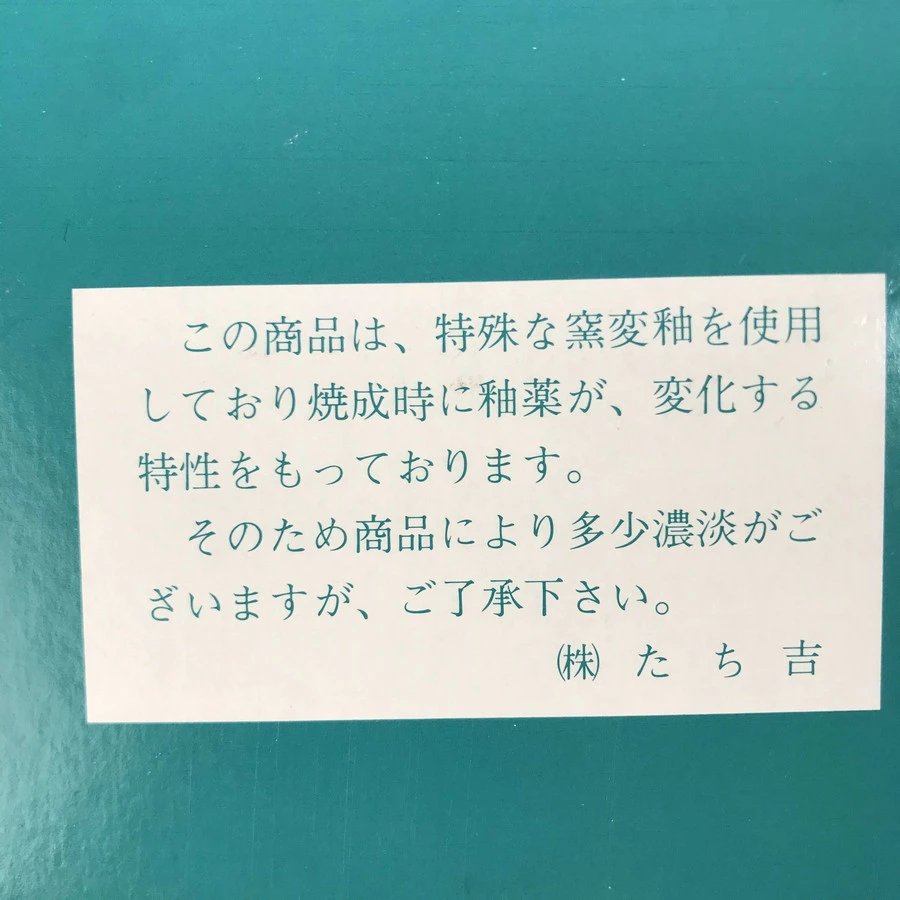 この商品は、特殊な窯変釉を使用
しており焼成時に釉薬が、変化する
特性をもっております。
そのため商品により多少濃淡がご
ざいますが、ご了承下さい。
㈱ たち吉